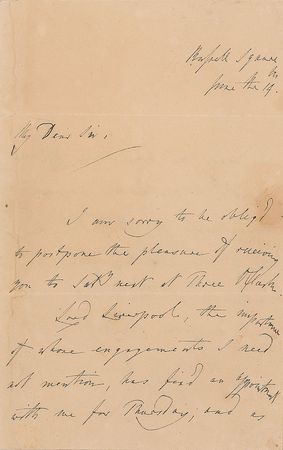 Russell Square
June the 19.
My Dear Sir,
I am sorry to be oblig'd
to postpone the pleasure of receiving
you to Sat.y next at Three O'Clock.
Lord Liverpool, the importance
of whose engagements I need
not mention, has fix'd an appointment
with me for Thursday; and as